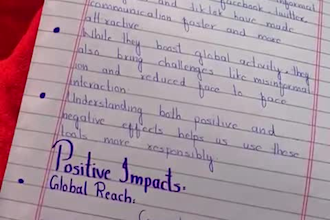 and tiktok have made
communication faster and more
attractive
While they boost global activity, they
also bring challenges like misinformat
ion and reduced face to face
interaction
Understanding both positive and
negative effects helps us use these
tools more responsibly
Positive Impacts:
Global Reach: